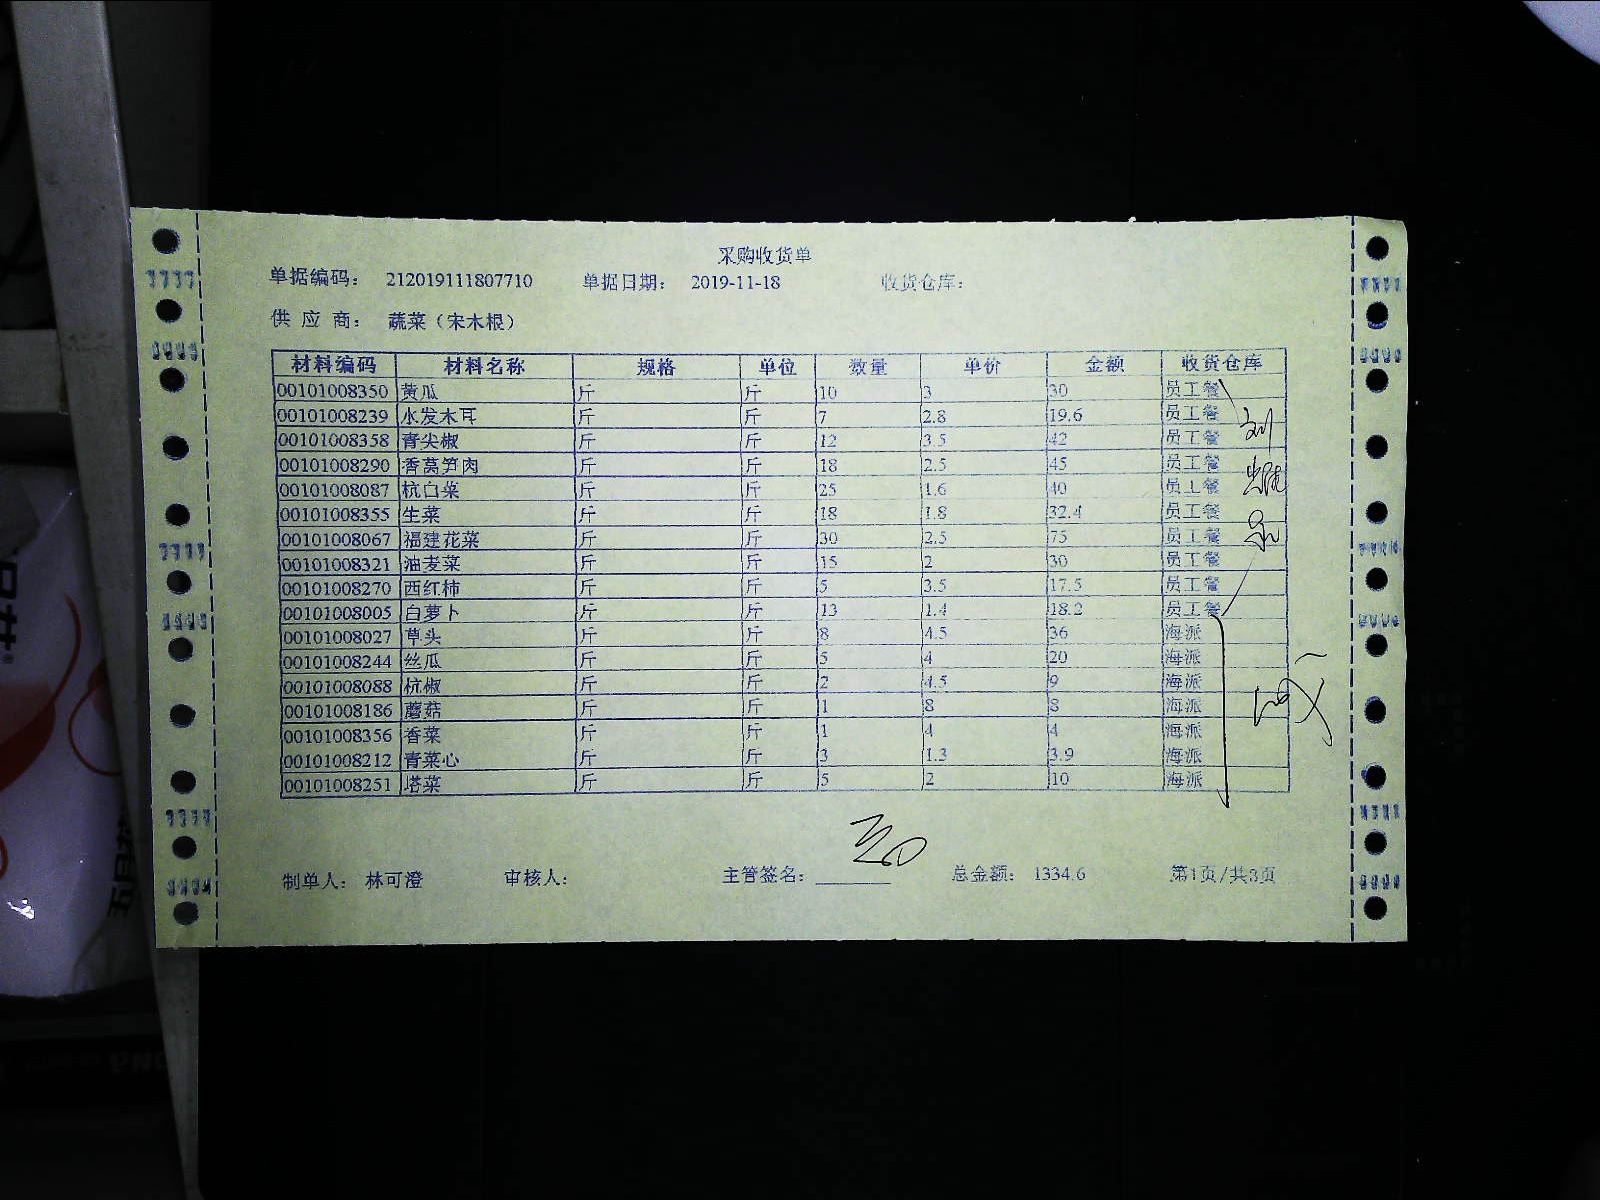 采购收货单
单据编码： 212019111807710 单据日期： 2019-11-18 收货仓库：
供 应 商： 蔬菜（宋木根）
材料编码 材料名称 规格 单位 数量 单价 金额 收货仓库
00101008350 黄瓜 斤 斤 10 3 30 员工餐
00101008239 水发木耳 斤 斤 7 2.8 19.6 员工餐
00101008358 青尖椒 斤 斤 12 3.5 42 员工餐
00101008290 香莴笋肉 斤 斤 18 2.5 45 员工餐
00101008087 杭白菜 斤 斤 25 1.6 40 员工餐
00101008355 生菜 斤 斤 18 1.8 32.4 员工餐
00101008067 福建花菜 斤 斤 30 2.5 75 员工餐
00101008321 油麦菜 斤 斤 15 2 30 员工餐
00101008270 西红柿 斤 斤 5 3.5 17.5 员工餐
00101008005 白萝卜 斤 斤 13 1.4 18.2 员工餐
00101008027 草头 斤 斤 8 4.5 36 海派
00101008244 丝瓜 斤 斤 5 4 20 海派
00101008088 杭椒 斤 斤 2 4.5 9 海派
00101008186 蘑菇 斤 斤 1 8 8 海派
00101008356 香菜 斤 斤 1 4 4 海派
00101008212 青菜心 斤 斤 3 1.3 3.9 海派
00101008251 塔菜 斤 斤 5 2 10 海派
制单人： 林可澄 审核人： 主管签名： 总金额： 1334.6 第1页/共3页